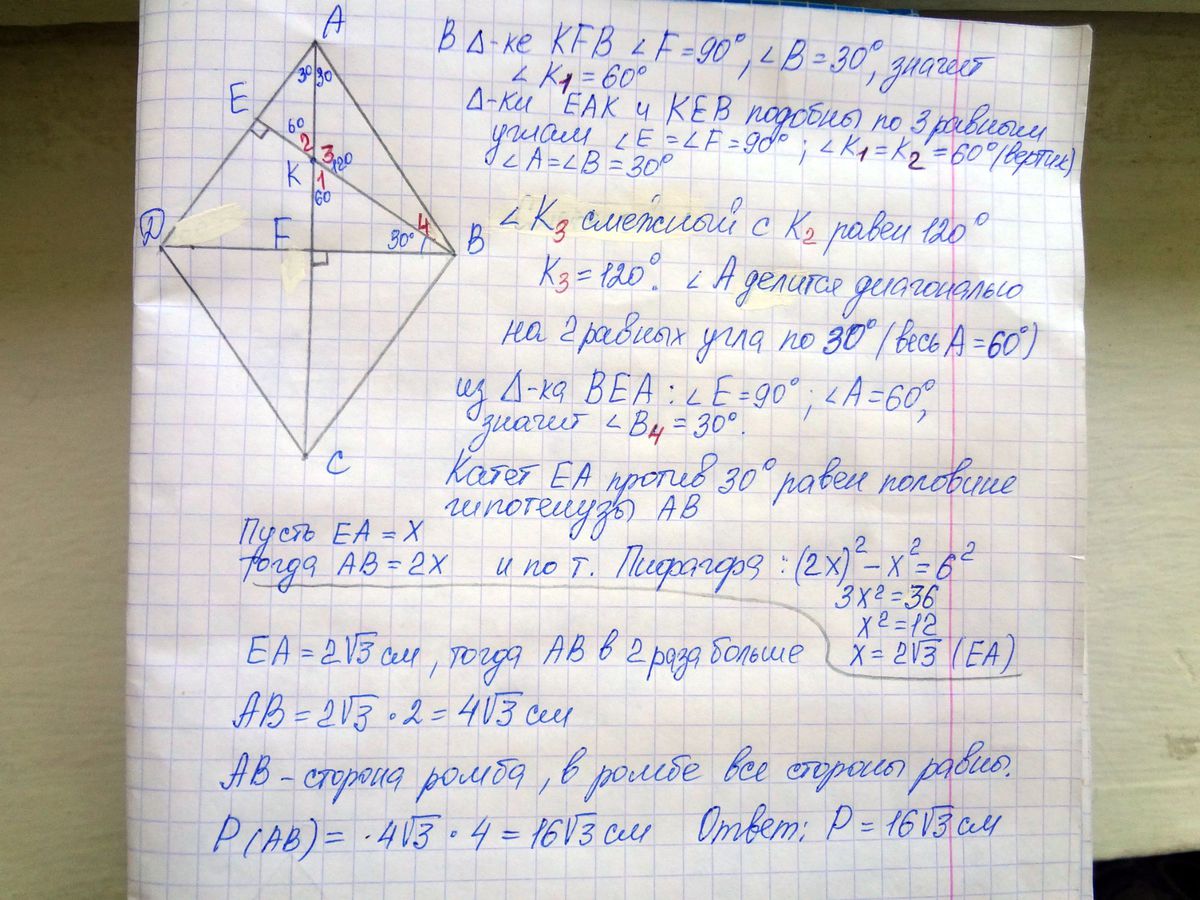 A
30 30
E
60
2 3 120
K 1
60
4
D F 30° B
C
В Δ-ке KFB ∠F=90°, ∠B=30°, значит
∠K1=60°
Δ-ки EAK и KEB подобны по 3 равным
углам ∠E=∠F=90°; ∠K1=K2=60° (вертик)
∠A=∠B=30°
∠K3 смежный с K2 равен 120°
K3=120°. ∠A делится диагональю
на 2 равных угла по 30° (весь A=60°)
из Δ-ка BEA: ∠E=90°; ∠A=60°,
значит ∠B4=30°.
Катет EA против 30° равен половине
гипотенузы AB
Пусть EA=x
тогда AB=2x и по т. Пифагора: (2x)²-x²=6²
3x²=36
x²=12
x=2√3 (EA)
EA=2√3 см, тогда AB в 2 раза больше
AB=2√3·2=4√3 см
AB - сторона ромба, в ромбе все стороны равны.
P(AB)=·4√3·4=16√3 см Ответ: P=16√3 см